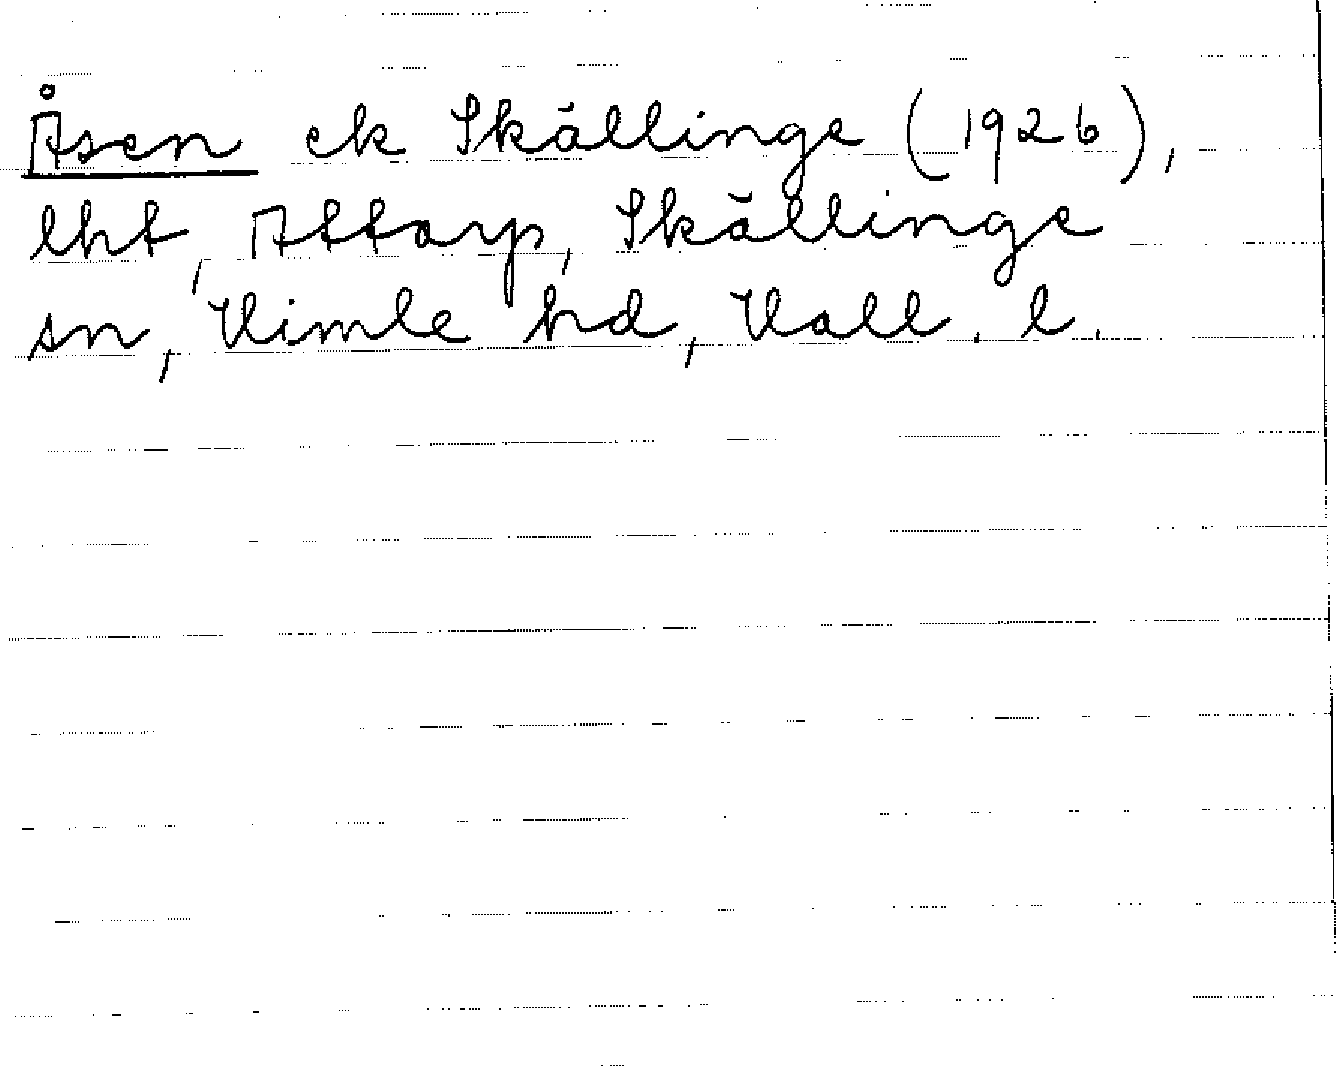 Åsen ek Skällinge (1926),
lht, Attarp, Skällinge
sn, Vimle hd, Vall. l.